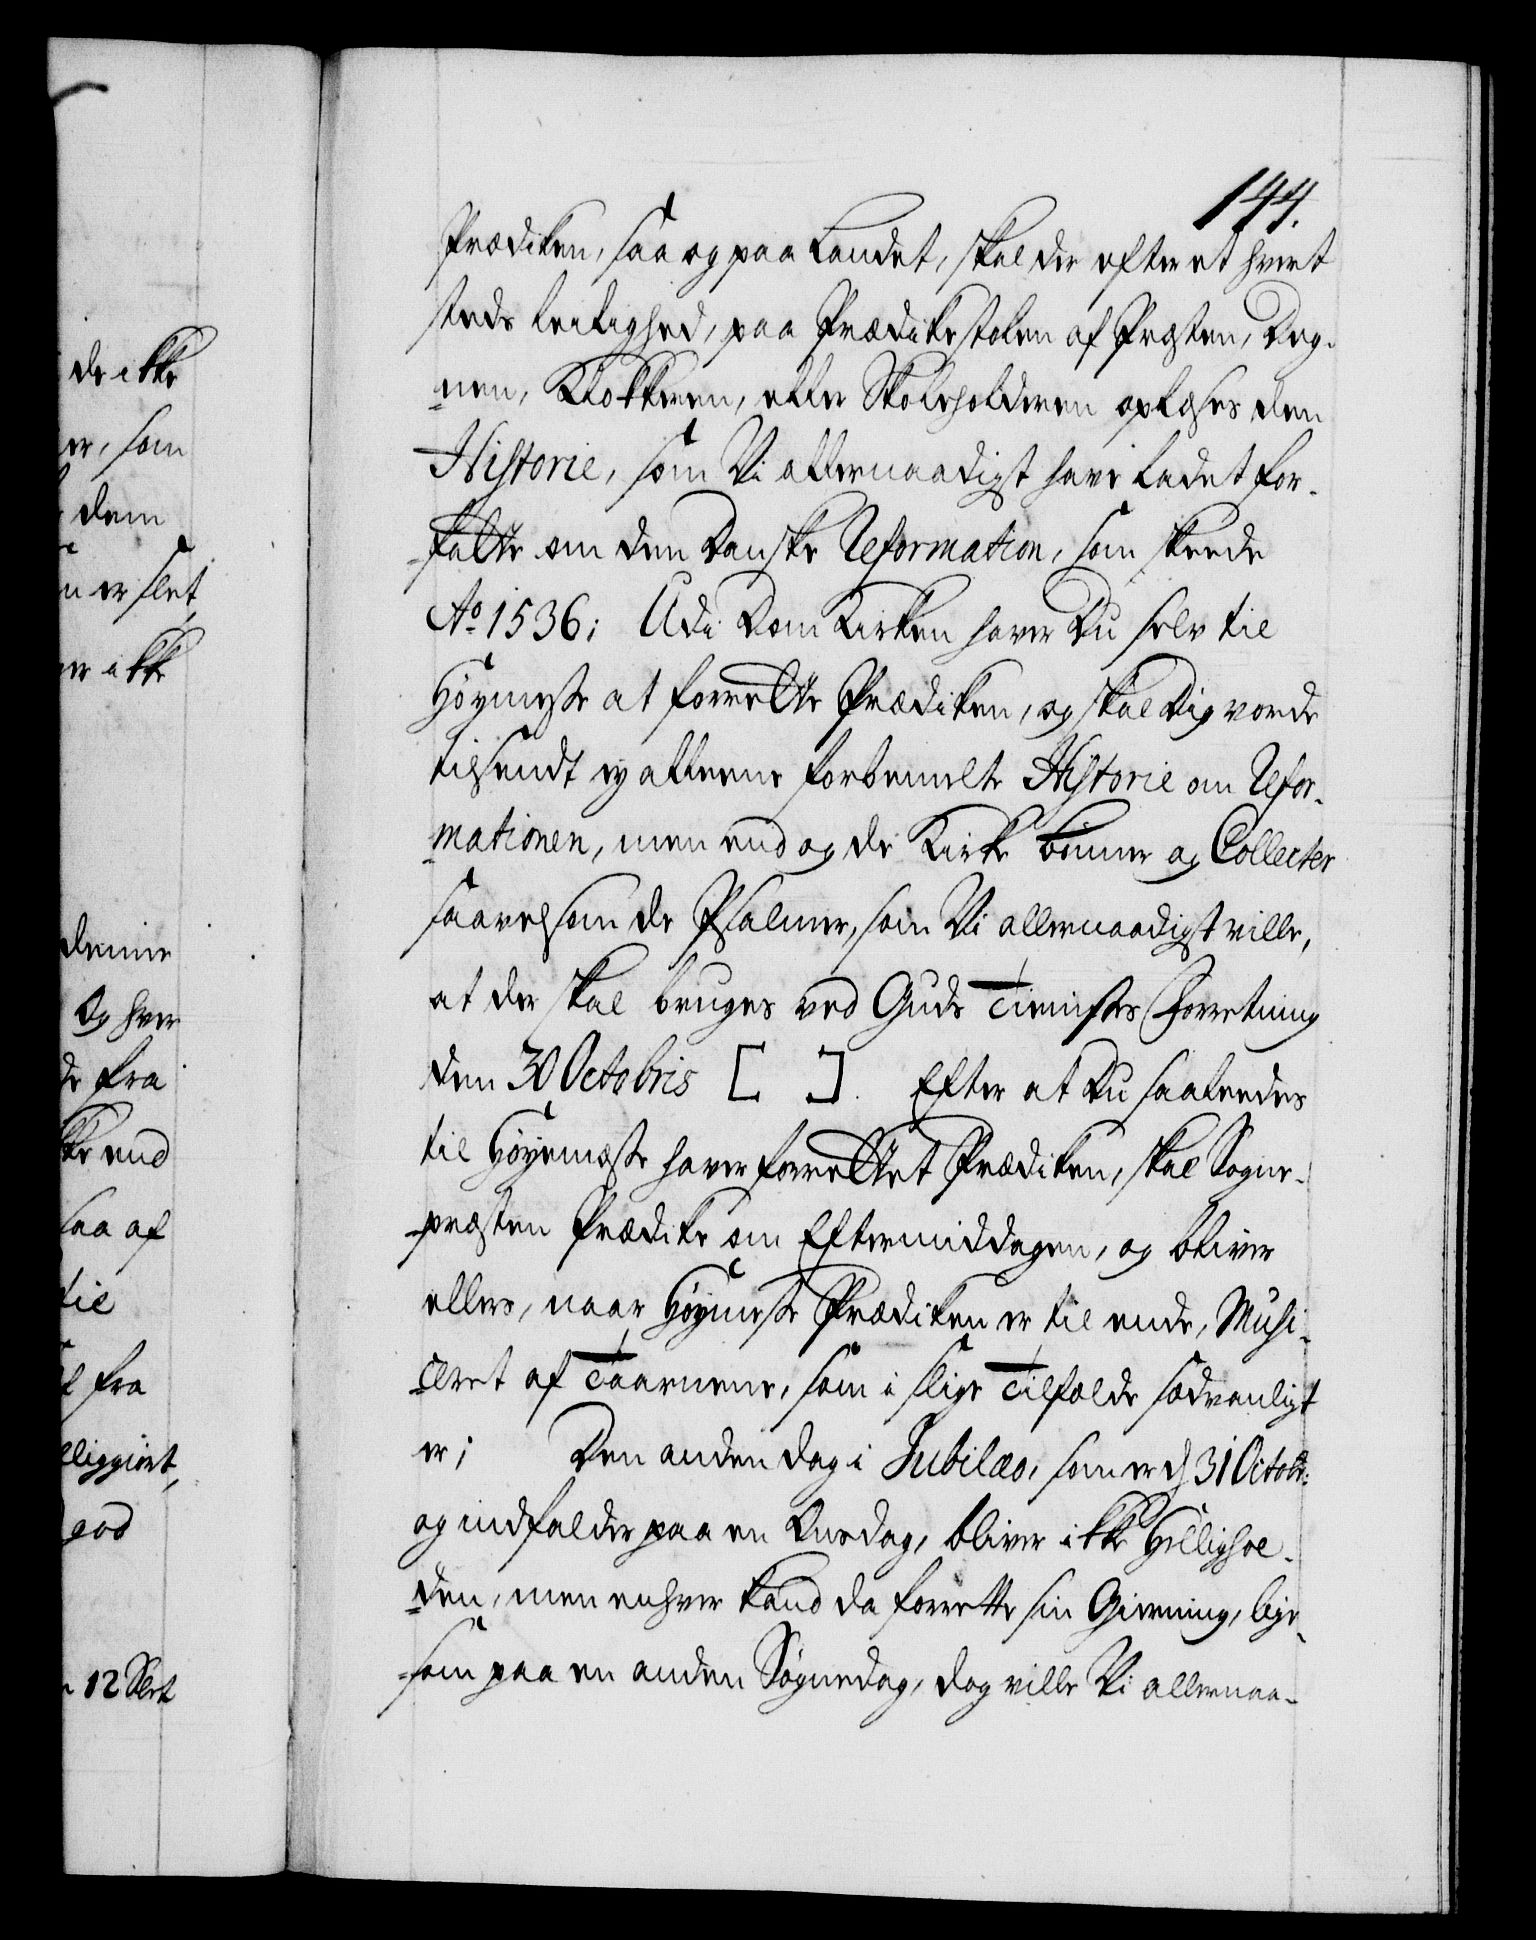 144.
Prædiken, saa og paa Landet, skal der efter et hvert
steds Leilighed, paa Prædikestolen af Præsten, Deg-
nen, Klokkeren, eller Skoleholderen oplæses den
Historie, som Vi allernaadigst have ladet for-
fatte om den Danske Reformation, som skeede
Ao. 1536; Udi Dom Kirken haver Du selv til
Høymesse at forrette Prædiken, og skal Dig vorde
tilsendt ey alleene forbemelte Historie om Refor-
mationen, men end og de Kirke bønner og Collecter
saavelsom de Psalmer, som Vi allernaadigst ville,
at der skal bruges ved Guds Tienistes Forretning
den 30 Octobris [ ]. Efter at Du saaledes
til Høyemæsse haver forrettet Prædiken, skal Sogne-
præsten Prædike om Eftermiddagen, og bliver
ellers, naar Høymesse Prædiken er til ende, Musi-
ceret af Taarnene, som i slige Tilfælde sædvanligt
er; Den anden dag i Jubilæo, som er d. 31 Octobr:
og indfalder paa en Onsdag, bliver ikke Hellighol-
den, men enhver kand da forrette sin Gierning, lige-
som paa en anden Søgnedag, dog ville Vi allernaa-
de ikke
er, som
dem
n er slet
er ikke
denne
Og hver
de fra
kke end
saa af
til
fra
lliggiort,
god
12 Slet